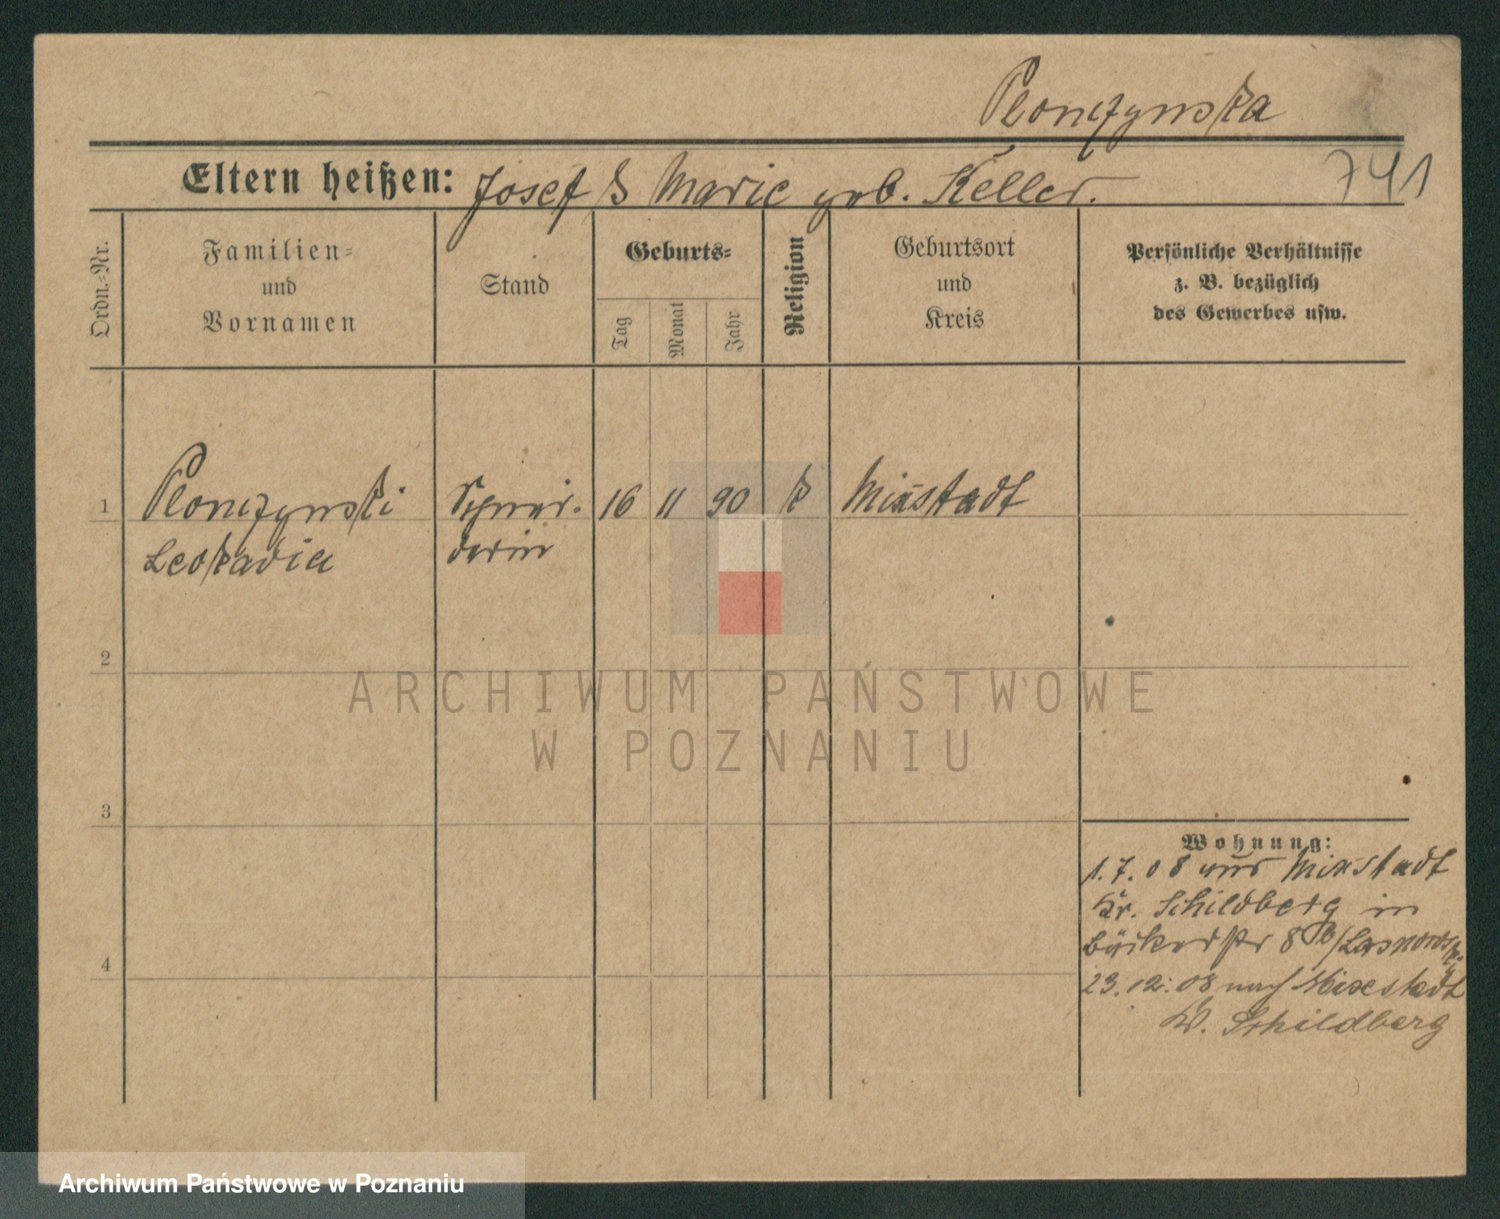 Plonczynska
Eltern heißen: Josef & Marie geb. Keller.
741
Ordn.-Nr.
Familien-
und
Vornamen
Stand
Geburts-
Tag
Monat
Jahr
Religion
Geburtsort
und
Kreis
Persönliche Verhältnisse
z. B. bezüglich
des Gewerbes usw.
1 Plonczynski Schnei- 16 11 90 k Mixstadt
Leokadia derin
2
ARCHIWUM PAŃSTWOWE
W POZNANIU
3
Wohnung:
1.7.08 aus Mixstadt
Kr. Schildberg in
Bäckerstr 8
4
23.12.08 nach Mixstadt
Kr. Schildberg
Archiwum Państwowe w Poznaniu